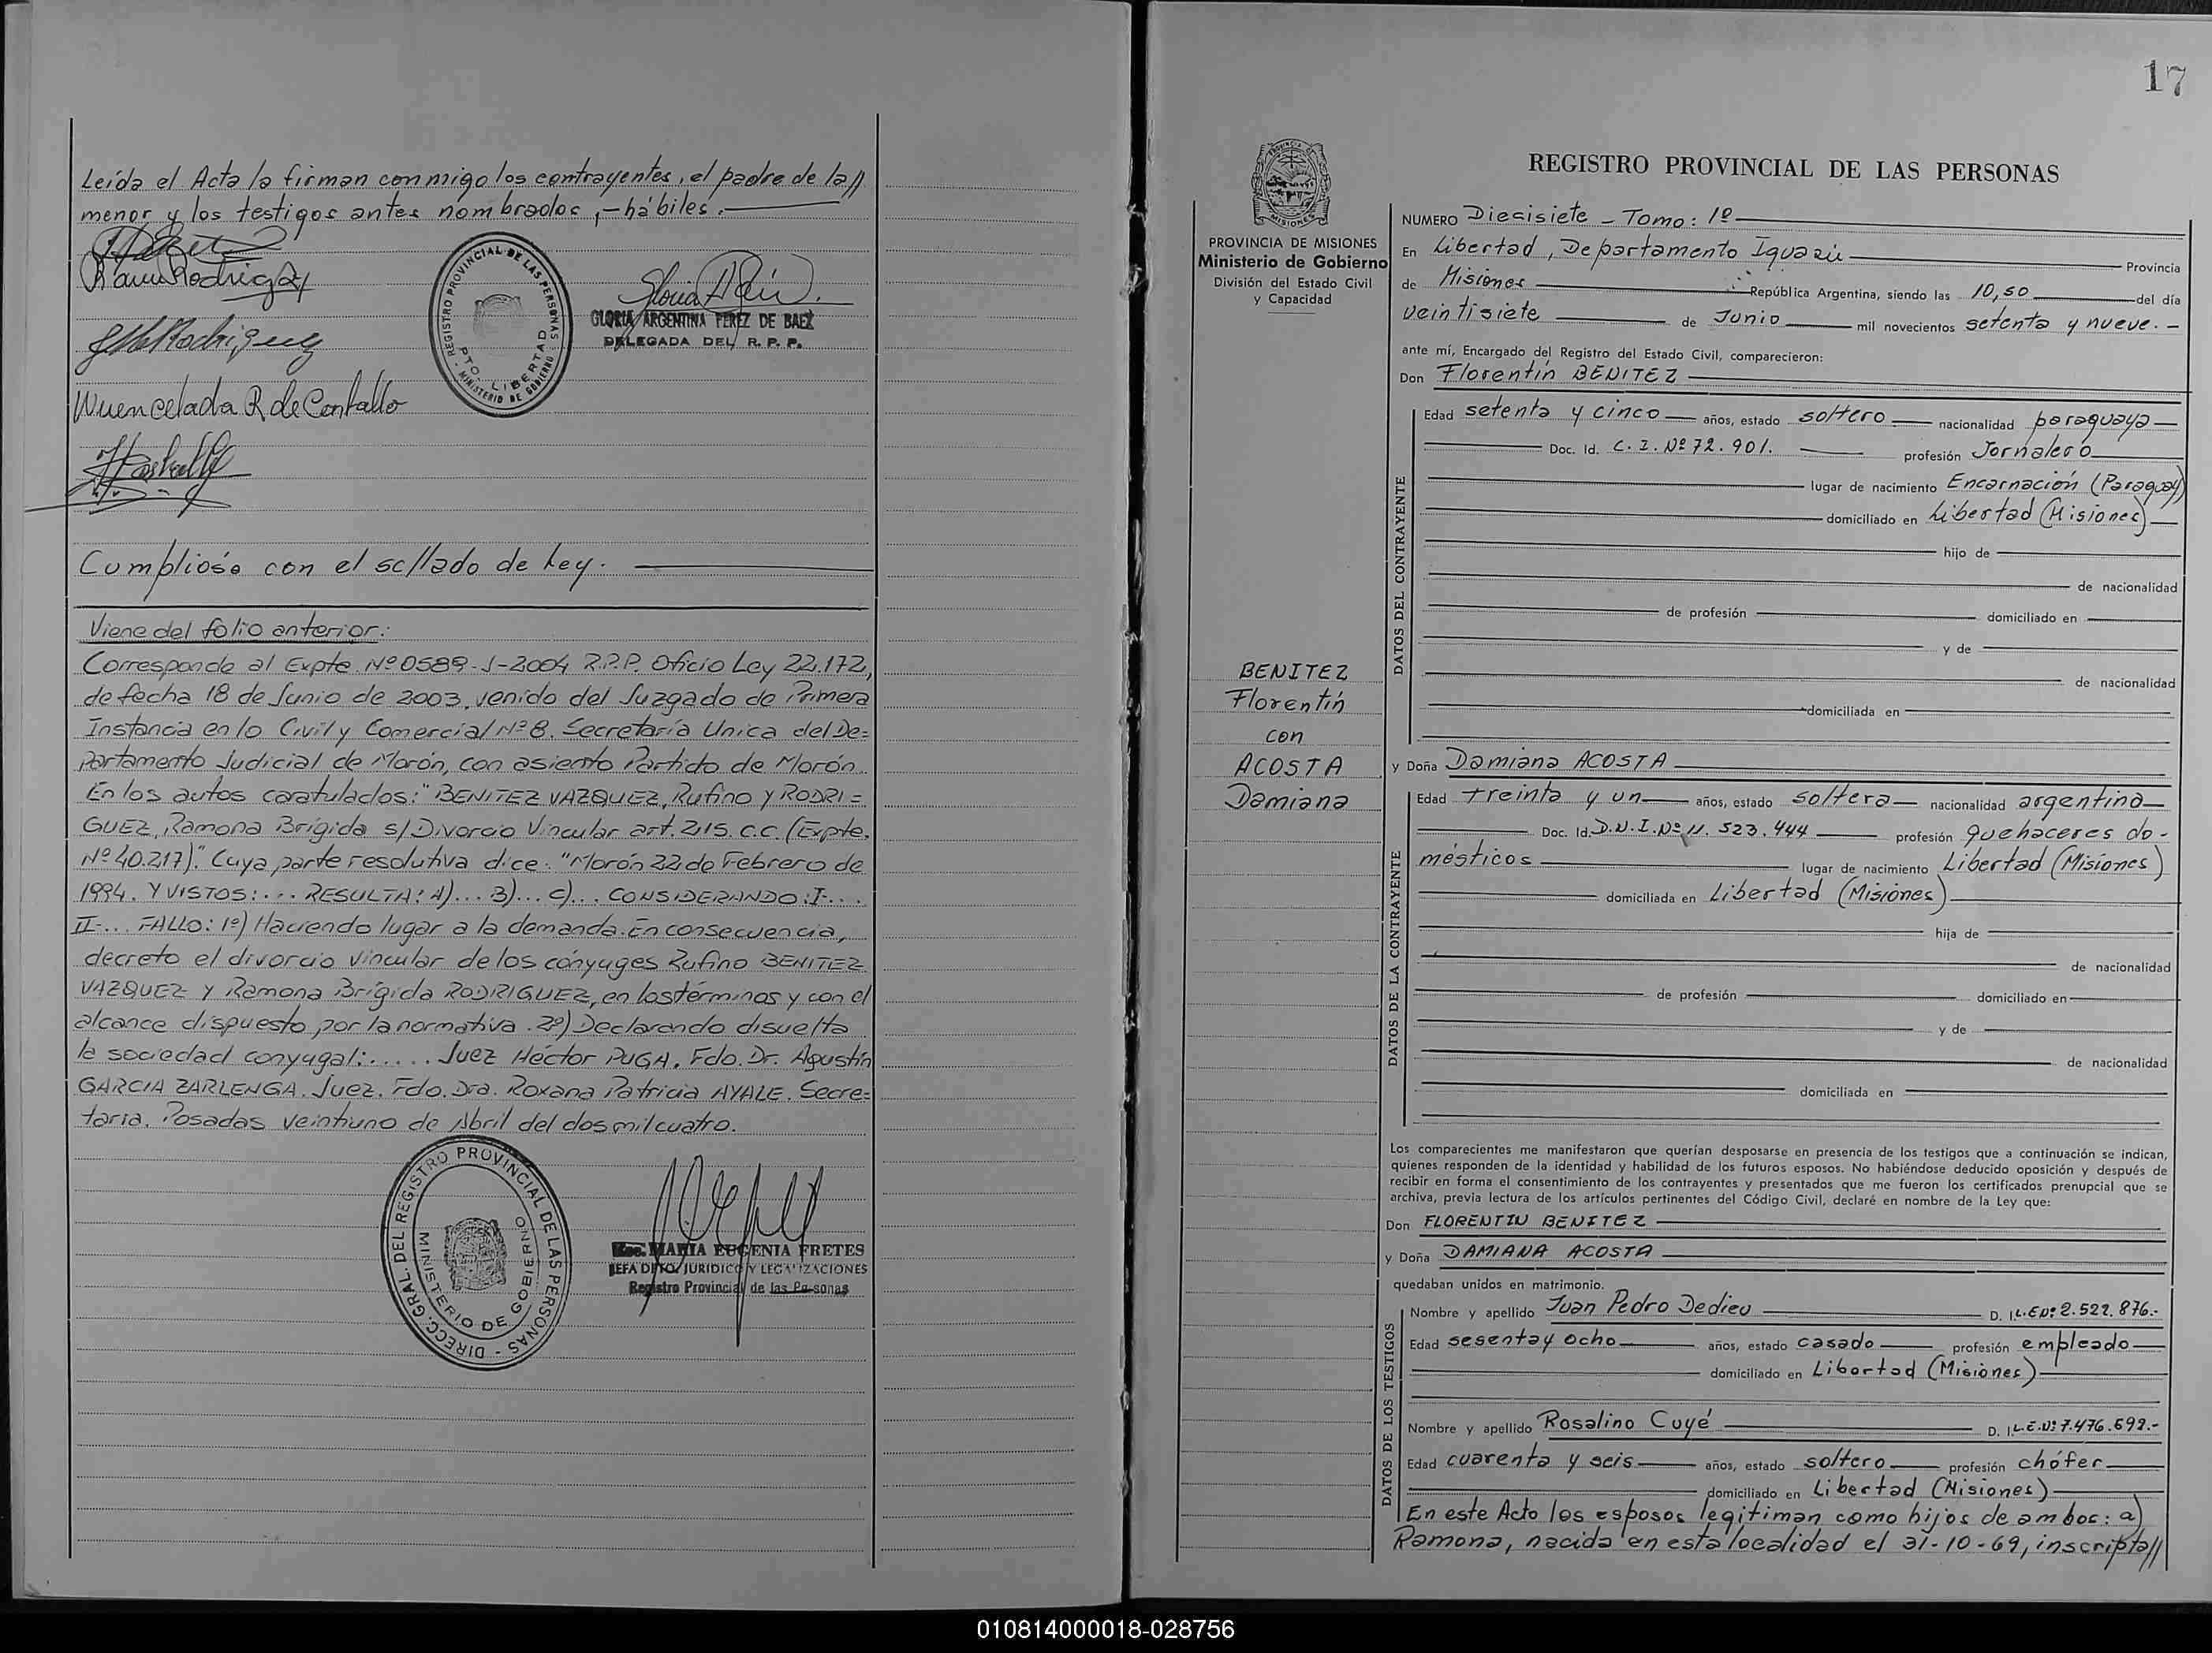 Leída el Acta la firman conmigo los contrayentes, el padre de la//
menor y los testigos antes nombrados, - hábiles. -
Ramon Rodriguez
Rodriguez
Wuencelada R de Contallo
REGISTRO PROVINCIAL DE LAS PERSONAS
PTO. LIBERTAD
MINISTERIO DE GOBIERNO
GLORIA ARGENTINA PEREZ DE BAEZ
DELEGADA DEL R. P. P.
Cumplióse con el sellado de Ley. -
Viene del folio anterior:
Corresponde al Expte. Nº 0589-J-2004 R.P.P. Oficio Ley 22.172,
de fecha 18 de Junio de 2003, venido del Juzgado de Primera
Instancia en lo Civil y Comercial Nº 8. Secretaría Unica del De=
partamento Judicial de Morón, con asiento Partido de Morón.
En los autos caratulados: "BENITEZ VAZQUEZ, Rufino y RODRI=
GUEZ, Ramona Brígida s/Divorcio Vincular art. 215. C.C. (Expte.
Nº 40.217)." Cuya parte resolutiva dice: "Morón 22 de Febrero de
1994. Y VISTOS: ... RESULTA: A)... B)... C)... CONSIDERANDO: I-...
II-... FALLO: 1º) Haciendo lugar a la demanda. En consecuencia,
decreto el divorcio vincular de los cónyuges Rufino BENITEZ
VAZQUEZ y Ramona Brígida RODRIGUEZ, en los términos y con el
alcance dispuesto por la normativa. 2º) Declarando disuelta
la sociedad conyugal: ..... Juez Héctor PUGA. Fdo. Dr. Agustín
GARCIA ZARLENGA. Juez. Fdo. Dra. Roxana Patricia AYALE. Secre=
taria. Posadas veintiuno de Abril del dos mil cuatro.
DIRECC. GRAL. DEL REGISTRO PROVINCIAL DE LAS PERSONAS
MINISTERIO DE GOBIERNO
MARIA EUGENIA FRETES
JEFA DPTO. JURIDICO Y LEGALIZACIONES
Registro Provincial de las Personas
17
MISIONES
PROVINCIA DE MISIONES
Ministerio de Gobierno
División del Estado Civil
y Capacidad
BENITEZ
Florentín
con
ACOSTA
Damiana
REGISTRO PROVINCIAL DE LAS PERSONAS
NUMERO Diecisiete - Tomo: 1º
En Libertad, Departamento Iguazú Provincia
de Misiones República Argentina, siendo las 10,50 del día
veintisiete de Junio mil novecientos setenta y nueve. -
ante mí, Encargado del Registro del Estado Civil, comparecieron:
Don Florentín BENITEZ
DATOS DEL CONTRAYENTE
Edad setenta y cinco años, estado soltero nacionalidad paraguaya
Doc. Id. C. I. Nº 72. 901. profesión Jornalero
lugar de nacimiento Encarnación (Paraguay)
domiciliado en Libertad (Misiones)
hijo de
de nacionalidad
de profesión domiciliado en
y de
de nacionalidad
domiciliada en
y Doña Damiana ACOSTA
DATOS DE LA CONTRAYENTE
Edad treinta y un años, estado soltera nacionalidad argentina
Doc. Id. D.N.I. Nº 11. 523. 444 profesión quehaceres do-
mésticos lugar de nacimiento Libertad (Misiones)
domiciliada en Libertad (Misiones)
hija de
de nacionalidad
de profesión domiciliado en
y de
de nacionalidad
domiciliada en
Los comparecientes me manifestaron que querían desposarse en presencia de los testigos que a continuación se indican,
quienes responden de la identidad y habilidad de los futuros esposos. No habiéndose deducido oposición y después de
recibir en forma el consentimiento de los contrayentes y presentados que me fueron los certificados prenupcial que se
archiva, previa lectura de los artículos pertinentes del Código Civil, declaré en nombre de la Ley que:
Don FLORENTIN BENITEZ
y Doña DAMIANA ACOSTA
quedaban unidos en matrimonio.
DATOS DE LOS TESTIGOS
Nombre y apellido Juan Pedro Dedieu D. I. L.E Nº 2.522.876.-
Edad sesenta y ocho años, estado casado profesión empleado
domiciliado en Libertad (Misiones)
Nombre y apellido Rosalino Cuyé D. I. L.E. Nº 7.476.692.-
Edad cuarenta y seis años, estado soltero profesión chófer
domiciliado en Libertad (Misiones)
En este Acto los esposos legitiman como hijos de ambos: a)
Ramona, nacida en esta localidad el 31-10-69, inscripta//
010814000018-028756